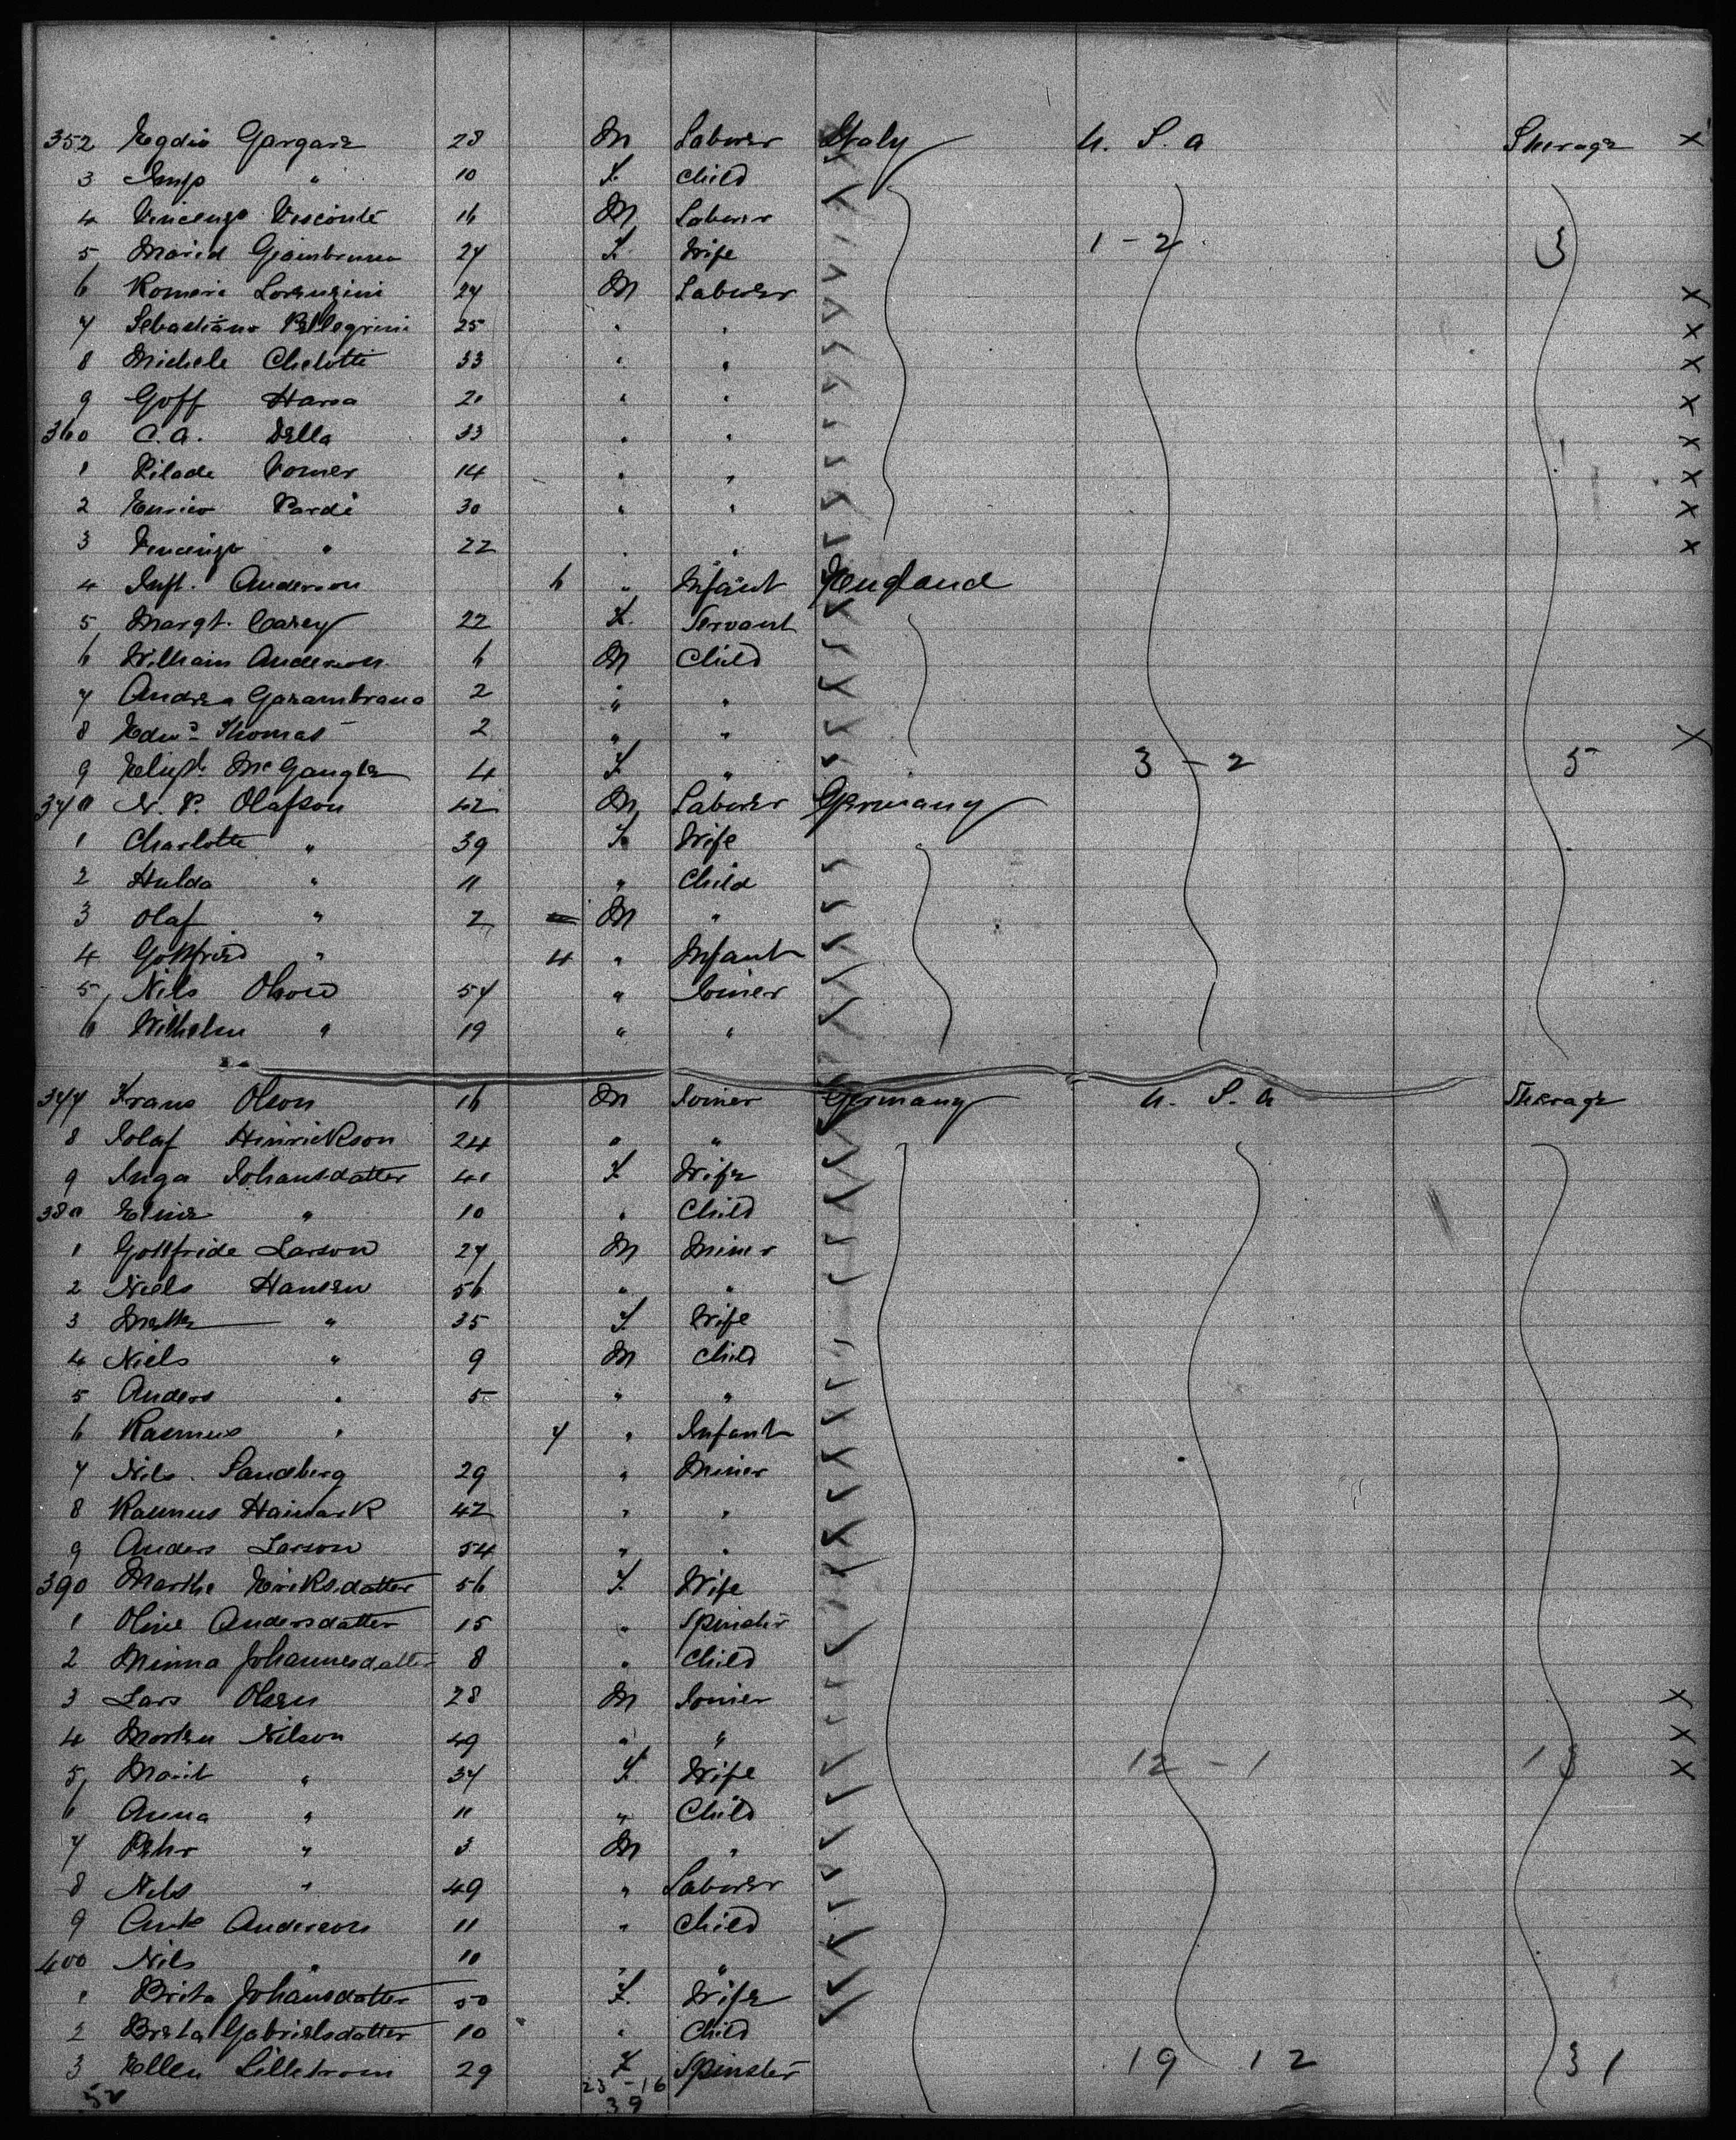 352 Egdio Gargare 28 M Laborer Italy U. S. A Steerage X
3 " 10 F. Child
4 Vincenzo Visconte 16 M Laborer
5 Marid Giambruno 27 F. Wife 1 - 2 3
6 Romeri Lorenzini 27 M Laborer X
7 Sebastiano Pellegrini 25 " " X
8 Michele Chelotti 33 " " X
9 Goff Harsa 20 " " X
360 C. A. Della 33 " " X
1 Pilade Vomer 14 " " X
2 Enrico Pardi 30 " " X
3 Vincenzo " 22 " " X
4 Inft. Anderson 6 " Infant England
5 Margt. Carey 22 F. Servant
6 William Anderson 6 M Child
7 Andrea Garambrana 2 " "
8 Edwd Thomas 2 " " X
9 Elizth McGaugh 4 F. " 3 - 2 5
370 N. P. Olafson 42 M Laborer Germany
1 Charlotte " 39 F. Wife
2 Hulda " 11 " Child
3 Olaf " 2 M "
4 Gottfried " 4 " Infant
5 Nils Olson 57 " Joiner
6 Wilhelm " 19 " "
377 Frans Olson 16 M Joiner Germany U. S. A Steerage
8 Jolaf Hinrickson 24 " "
9 Inga Johansdatter 40 F. Wife
380 Eline " 10 " Child
1 Gottfride Larson 27 M Miner
2 Niels Hansen 56 " "
3 Mette " 35 F. Wife
4 Niels " 9 M Child
5 Anders " 5 " "
6 Rasmus " 7 " Infant
7 Nils. Sandberg 29 " Miner
8 Rasmus Haimark 42 " "
9 Anders Larson 54 " "
390 Marthe Eriksdatter 56 F. Wife
1 Oline Andersdatter 15 " Spinster
2 Minna Johannesdatter 8 " Child
3 Lars Olsen 28 M Joiner X
4 Morten Nilson 49 " " X
5 Marit " 37 F. Wife 12 - 1 13 X
6 Anna " 11 " Child
7 Pehr " 3 M "
8 Nils " 49 " Laborer
9 Anderson 11 " Child
400 Nils " 10 " "
1 Brita Johansdatter 50 F. Wife
2 Breta Gabrielsdatter 10 " Child
3 Ellen Lillstrom 29 F Spinster 19 12 31
52 23 - 16
39